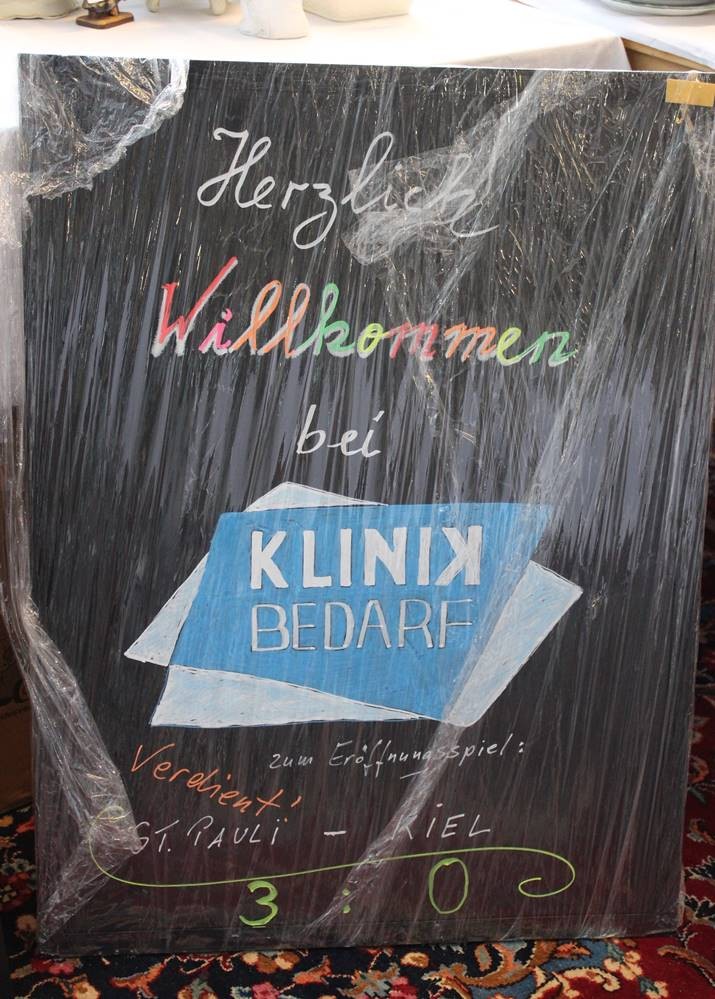 Herzlich
Willkommen
bei
KLINIK
BEDARF
zum Eröffnungsspiel:
Verdient!
ST. PAULI – KIEL
3 : 0